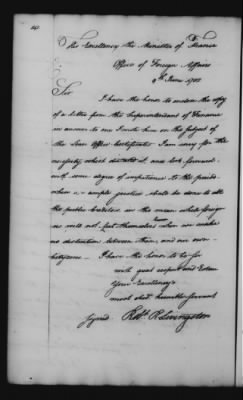 His Excellency the Minister of France
Office of Foreign Affairs
9th June 1782
Sir
I have the honor to enclose the copy
of a letter from the Superintendant of Finance
in answer to one I wrote him on the subject of
the Loan Office Certificates I am sorry for the
necessity which dictated it, and look forward
with some degree of impatience to the period
when ample justice shall be done to all
the public Creditors in the mean while foreign
ers will not themselves when we make
no distinction between them, and our own
Citizens. I have the honor to be Sir
with great respect and Esteem
Your Excellency's
most obedt humble servant
signed Robt R Livingston